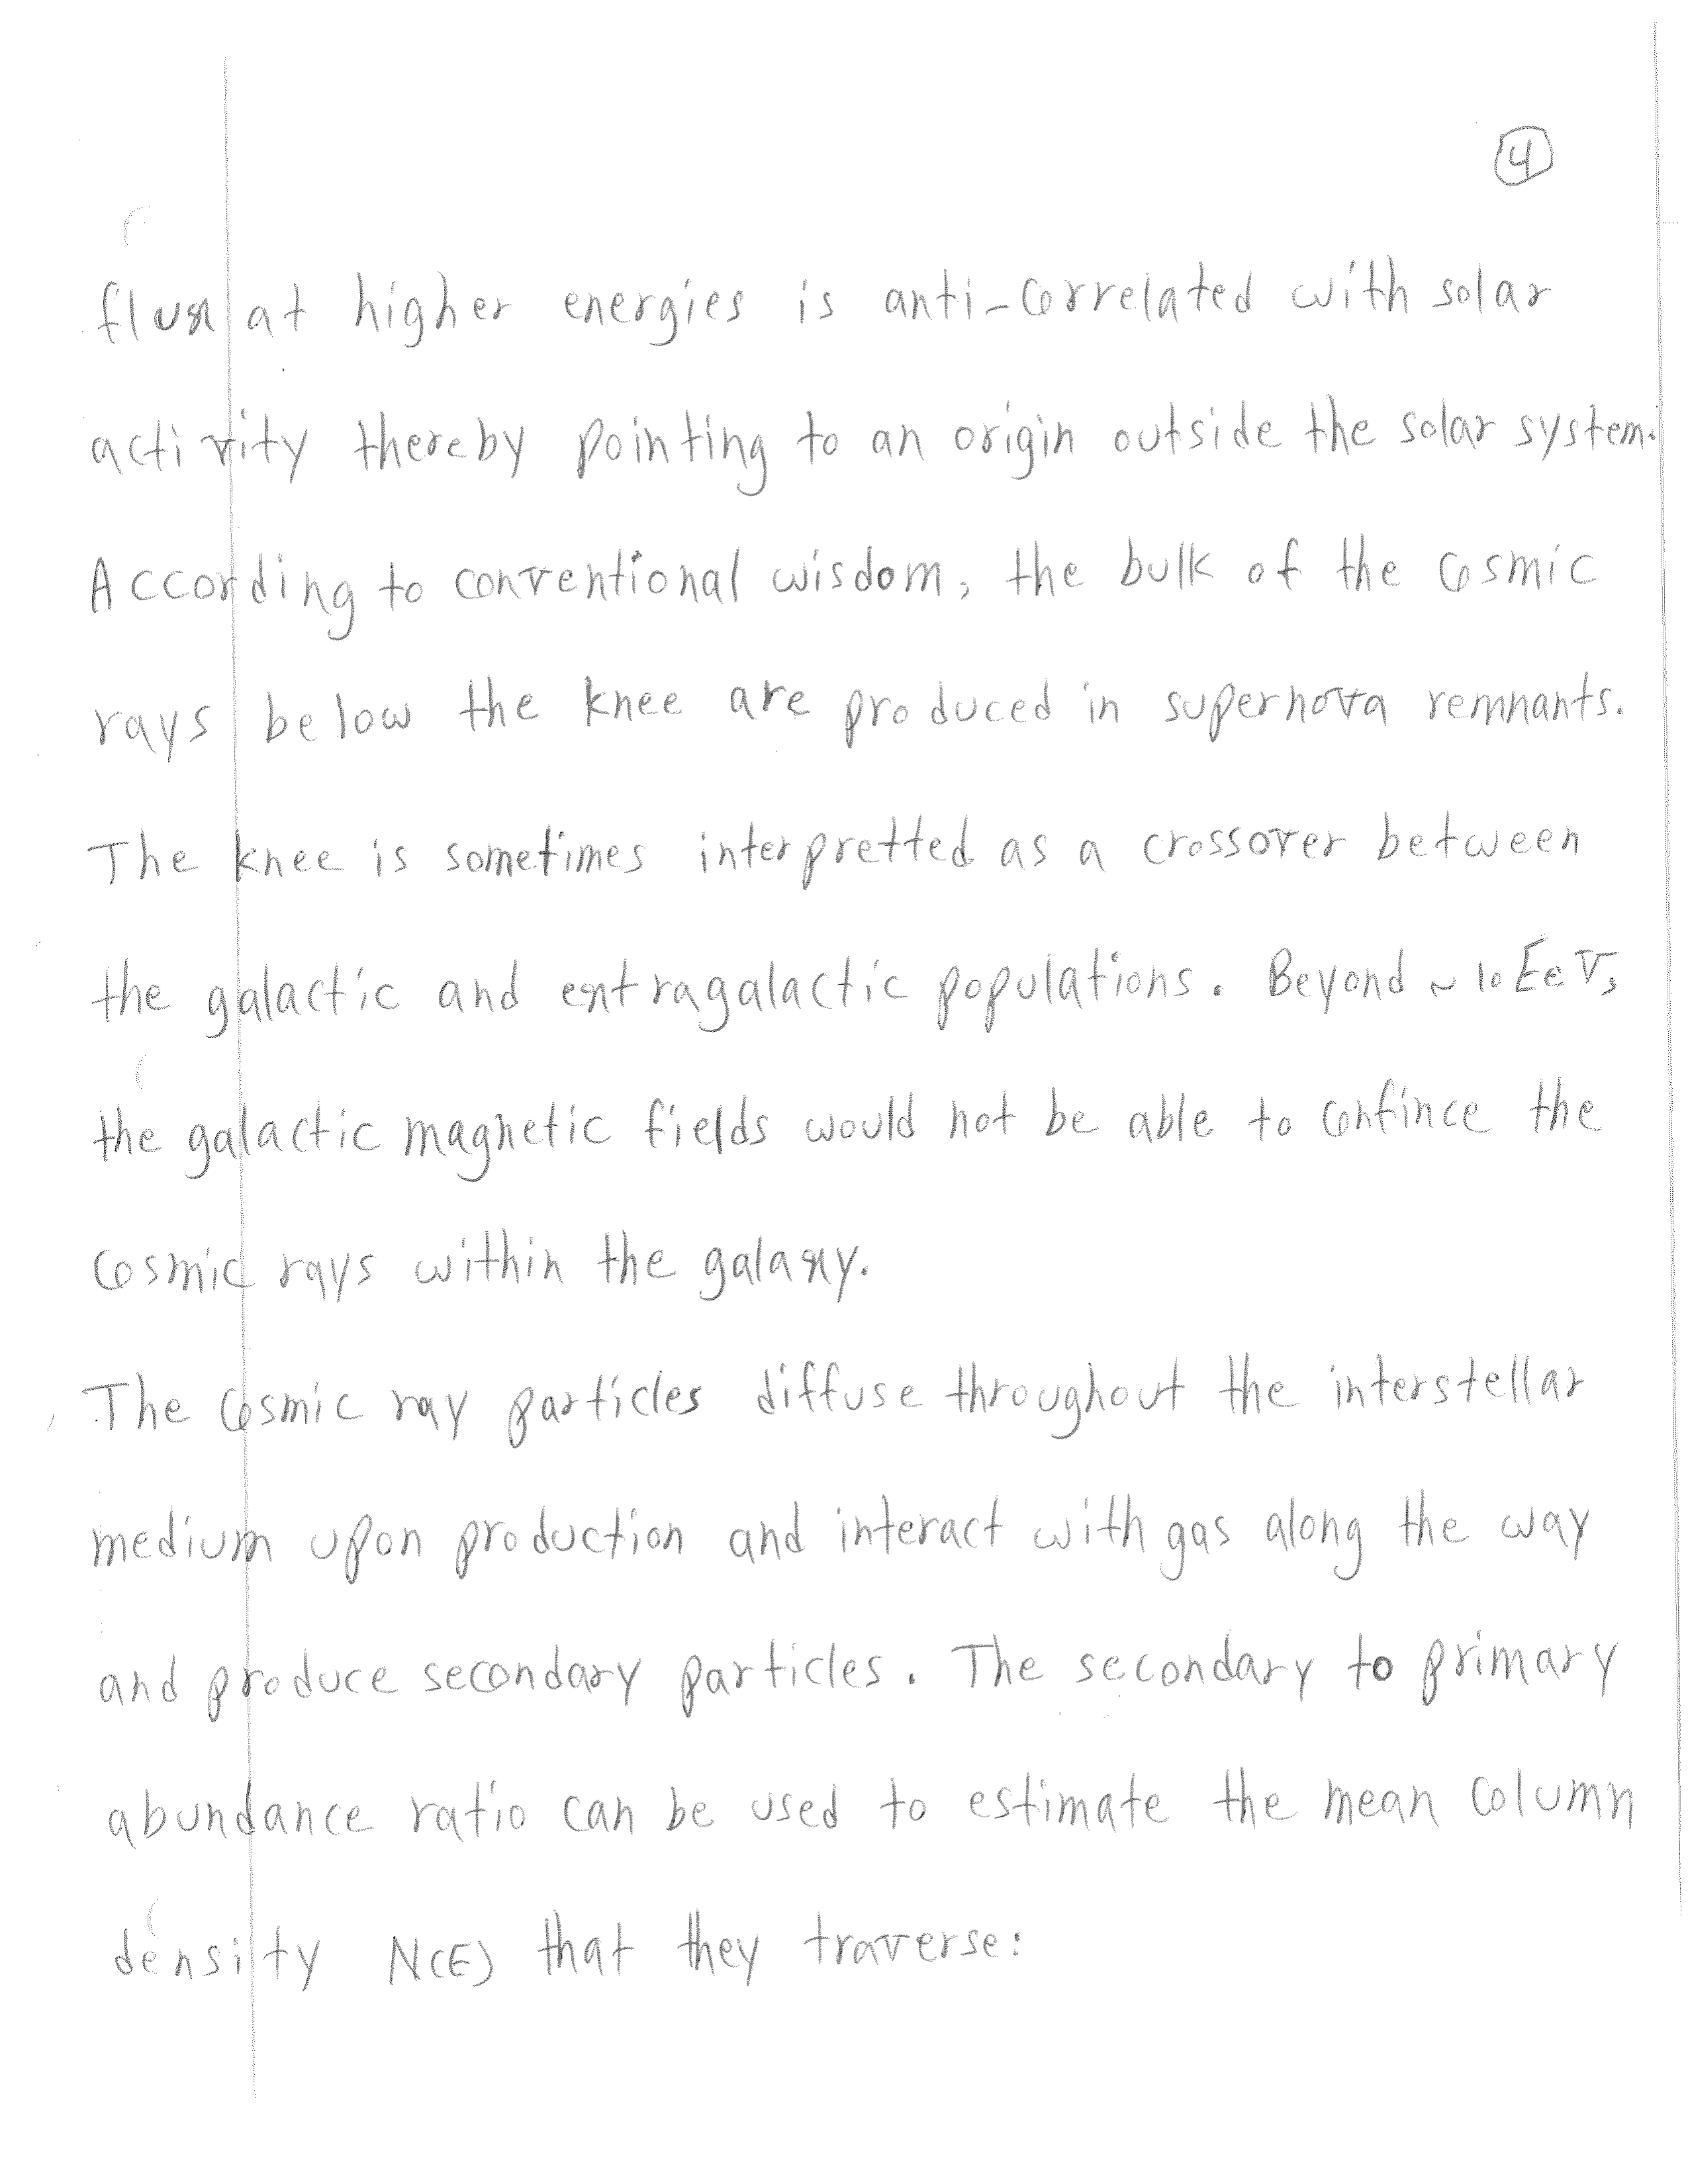 4
flux at higher energies is anti-correlated with solar
activity thereby pointing to an origin outside the solar system.
According to conventional wisdom, the bulk of the cosmic
rays below the knee are produced in supernova remnants.
The knee is sometimes interpretted as a crossover between
the galactic and extragalactic populations. Beyond ~ 10 EeV,
the galactic magnetic fields would not be able to confince the
cosmic rays within the galaxy.
The cosmic ray particles diffuse throughout the interstellar
medium upon production and interact with gas along the way
and produce secondary particles. The secondary to primary
abundance ratio can be used to estimate the mean column
density N(E) that they traverse: